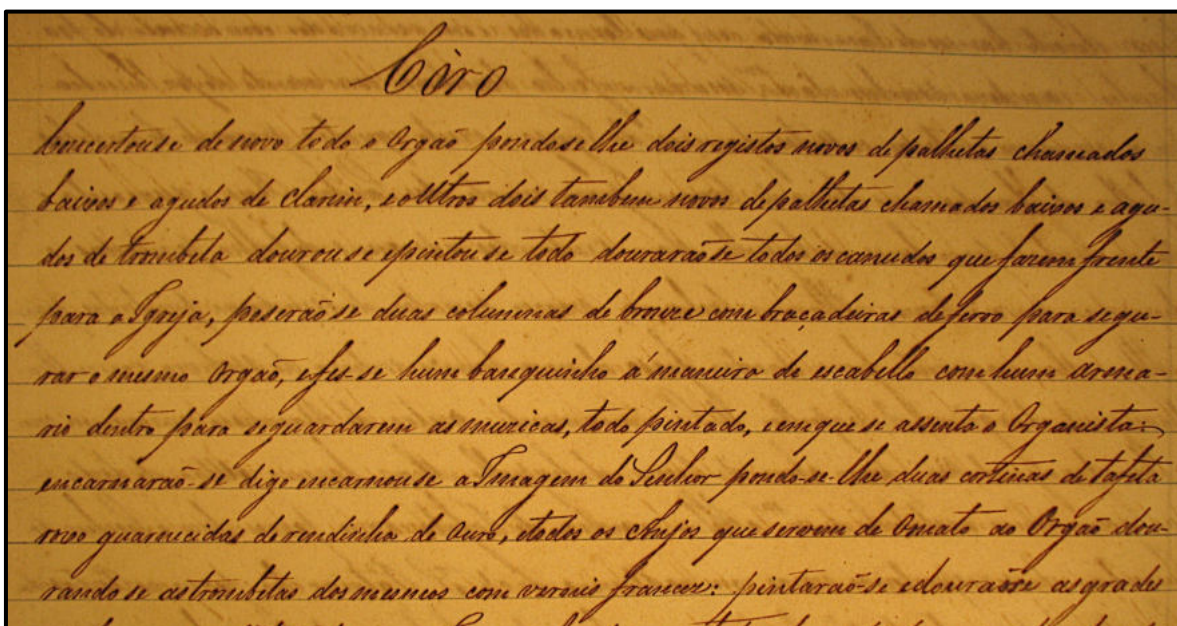 Coro
Concertouse de novo todo o Orgaõ pondoselhe dois registos novos de palhetas chamados
baixos e agudos de clarim, e outros dois tambem novos de palhetas chamados baixos e agu-
dos de trombeta dourouse epintouse todo dourarãose todos os canudos que fazem frente
para a Igreja, poserãose duas columnas de bronze com braçadeiras de ferro para segu-
rar o mesmo Orgaõ, efes-se hum banquinho á maneira de escabello com hum arma-
rio dentro para seguardarem as muzicas, todo pintado, e em que se assenta o Organista:
encarnaraõ-se digo encarnouse a Imagem do Senhor pondo-se-lhe duas cortinas de tafeta
roxo guarnecidas de rendinha de Ouro, etodos os Anjos que servem de Ornato ao Orgaõ dou-
randose as trombetas dos mesmos com vernis francez: pintaraõ-se e douraõse as grades